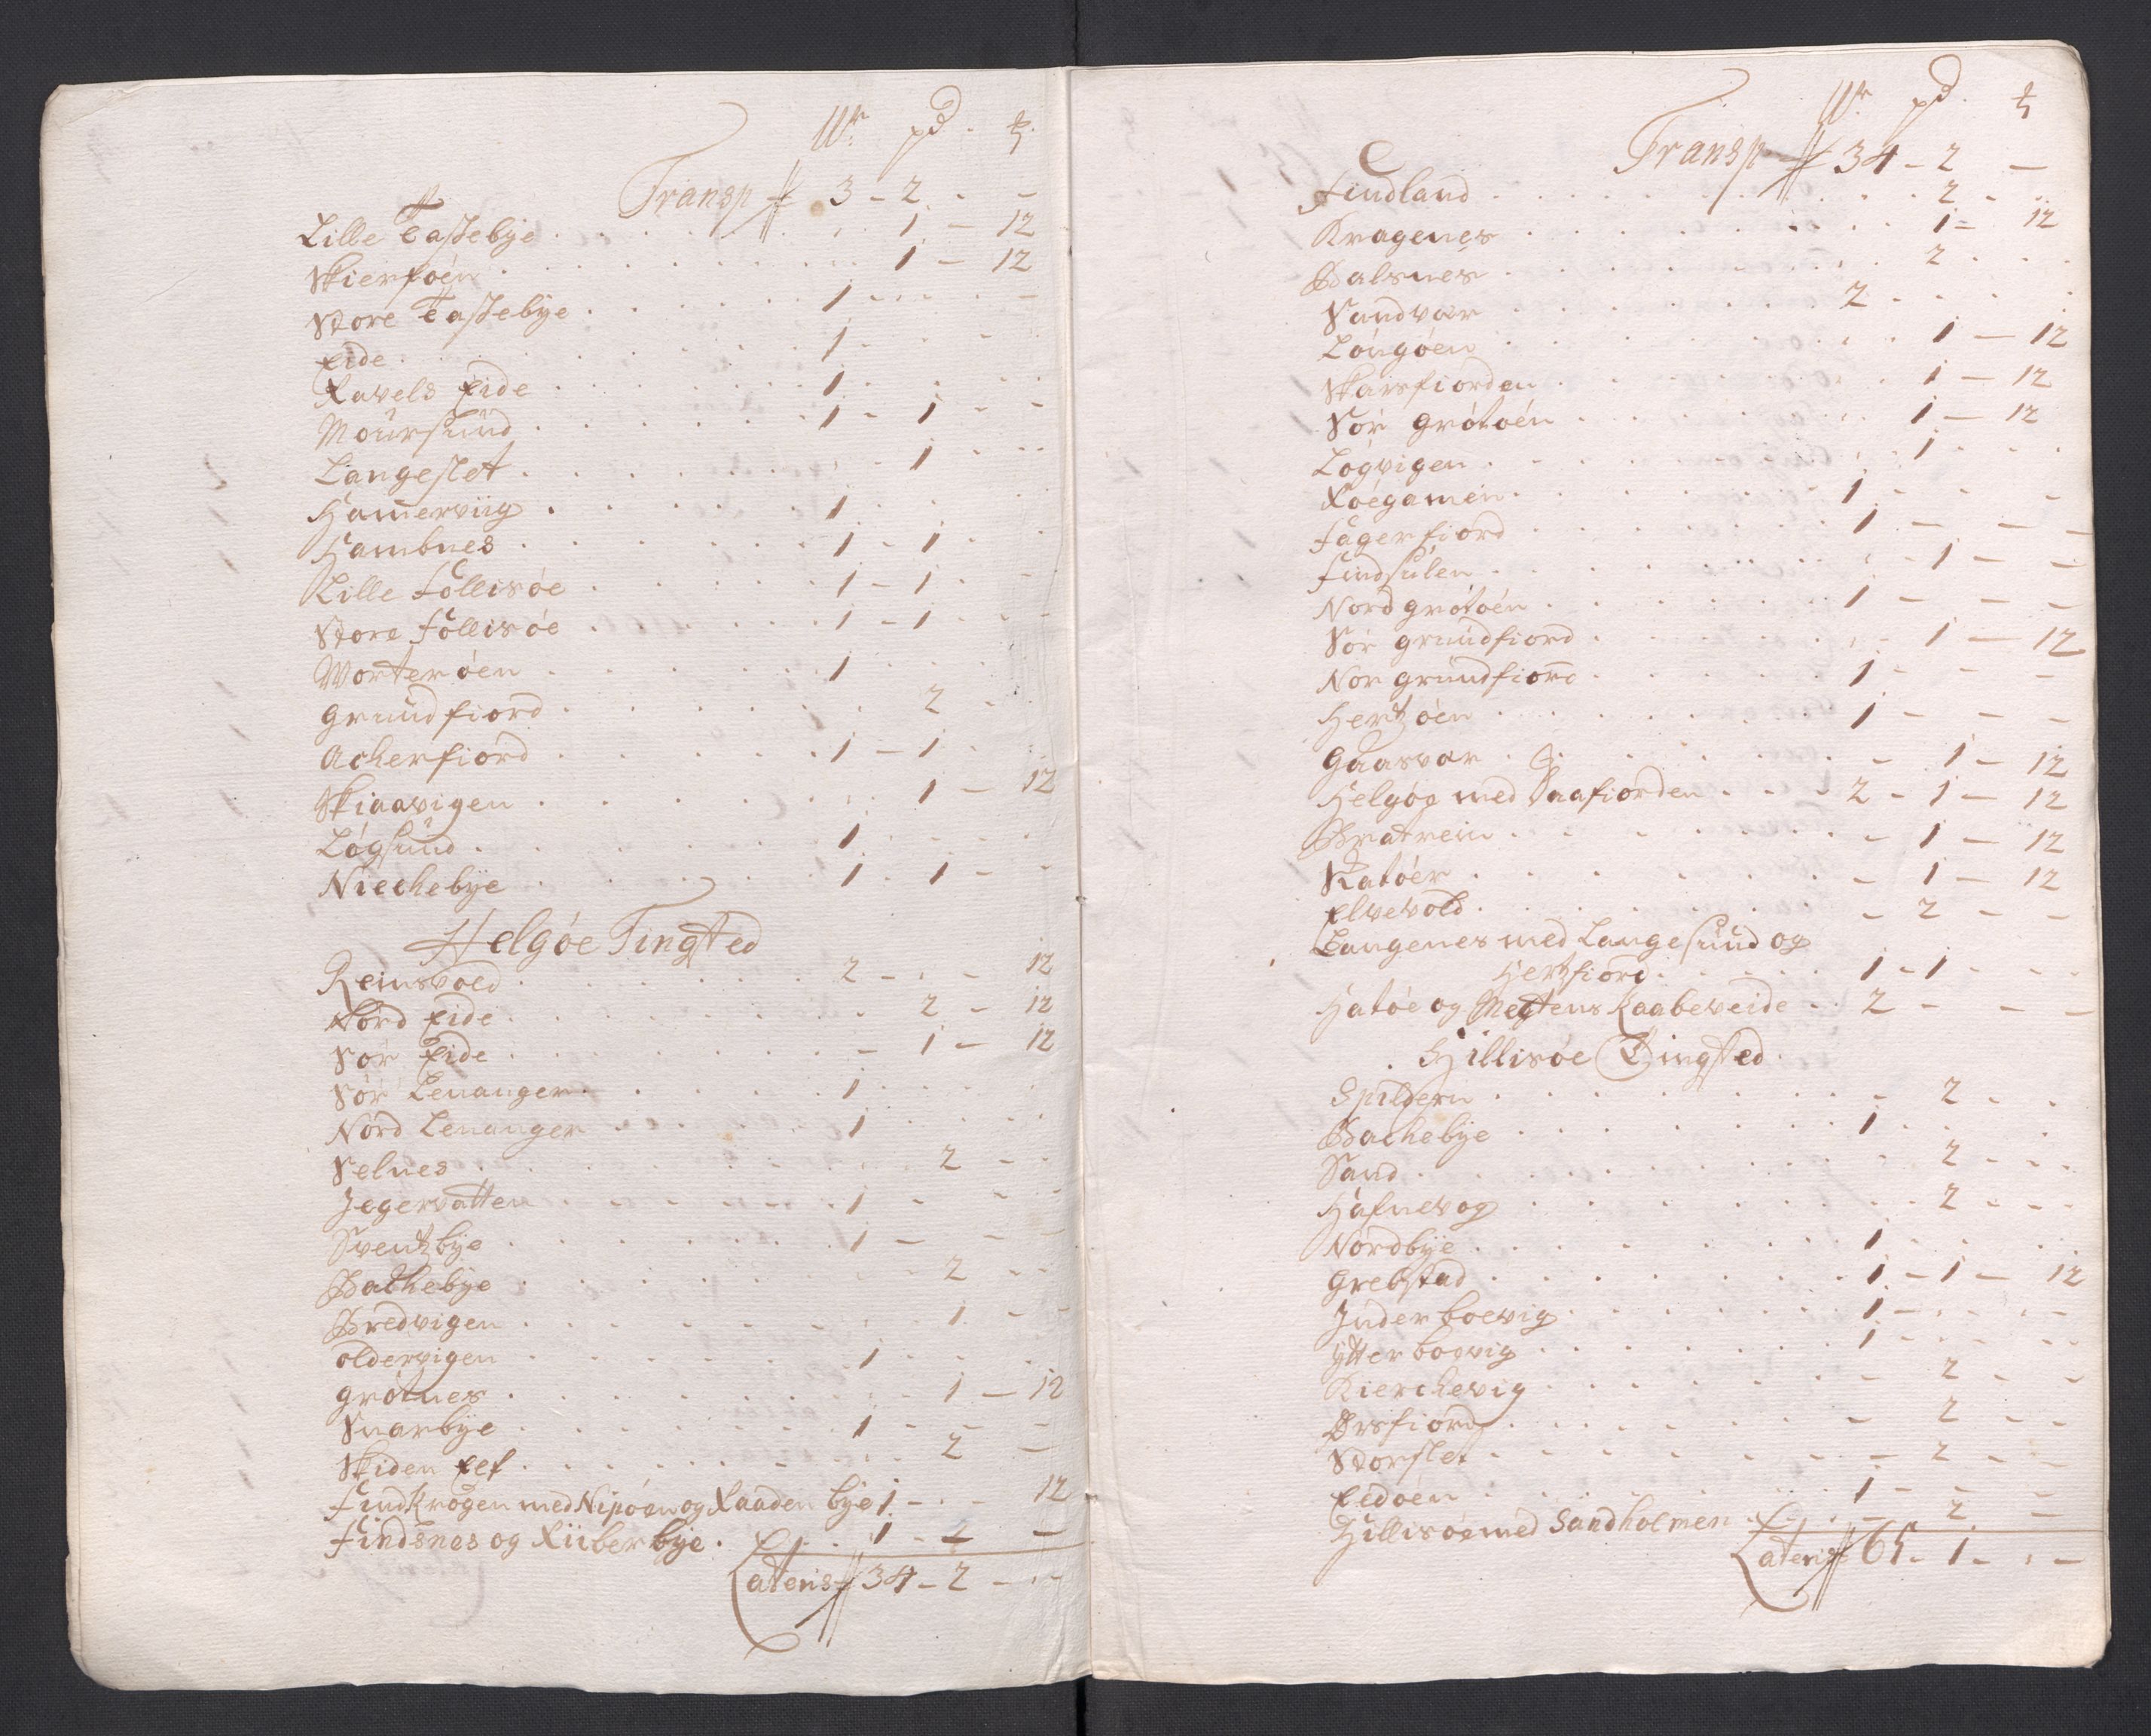 Wr pd. ℔.
Transp 3 - 2. - -
Lille Tastebye . . . 1. - 12
Skierføen . . . 1 - 12
Store Tastebye . . . 1 - - - -
Eide . . . 1. - - -
Ravels Eide . . . 1.
Moursund . . . 1 - 1 - -
Langeslet . . . 1. - -
Hamerviig . . . 1.
Hambnes . . . 1 - 1.
Lille Follisøe . . . 1 - 1 . -
Store Follisøe . . . 1 - 1 . - -
Worterøen . . . 1
Grundfiord . . . 2 - -
Ackerfiord . . . 1 - 1.
Skiaavigen . . . 1 - 12
Løgsund . . . 1.
Niechebye . . . 1. 1 - -
Helgøe Tingsted
Reinsvold . . . 2 - . - 12
Nord Eide . . . 2 - 12
Sør Eide . . . - 1 - 12
Sør Lenanger . . . 1
Nord Lenanger . . . 1
Selnes . . . 2 - .
Jegervatten . . . 1 - - -
Sventzbye . . . 1 - - -
Bachebye . . . 2 - -
Bredvigen . . . 1 - -
Oldervigen . . . 1
Grøtnes . . . 1 - 12
Snarbye . . . 1 - - -
Skiden Elf . . . 2 -
Findkrogen med Nipøen og Raaden bye 1 - . - 12
Findsnes og Riiberbye . . . 1 - 2 -
Lateris 34 - 2 - . -
Wr pd. ℔
Transp 34 - 2 -
Findland . . . 2 - .
Kragenes . . . 1 - 12
Balsnes . . . 2 . . .
Sandvær . . . 2 . . .
Løngøen . . . 1 - 12
Skarsfiorden . . . 1 - 12
Sør Grøtøen . . . 1 - 12
Løgvigen . . . 1. . .
Røegamen . . . 1 - - -
Fagerfiord . . . 1 - - -
Findsulen . . . 1 - -
Nord Grøtøen . . . 1 - - -
Sør Grundfiord . . . 1 - 12
Nor Grundfiord . . . 1 - - -
Hertzøen . . . 1 - - -
Gaasvær . . . - 1 - 12
Helgøe med Saafiorden . - - 2 - 1 - 12
Bratrein . . . - 1 - 12
Skatøer . . . - 1 - 12
Elvevold . . . - 2 - -
Langenes med Langesund og
Hertzfiord . . . 1 - 1 . - -
Hatøe og Megtens Kaabeveide . . 2 - - -
Hillisøe Tingsted.
Spildern . . . - 2 - .
Bachebye . . . 1 . .
Sand . . . 2 - - -
Hafnevog . . . 2 - - -
Nordbye . . . 1 . . .
Grebstad . . . 1 - 1 - 12
Inder boevig . . . 1 - . - -
Ytter boevig . . . 1 - - -
Kierchevig . . . - 2 - -
Ørsfiord . . . - 2 - -
Storslet . . . - 2 - -
Eidøen . . . 1 - - -
Hillisøe med Sandholmen . . . - 2 -
Lateris 65 - 1 - . -